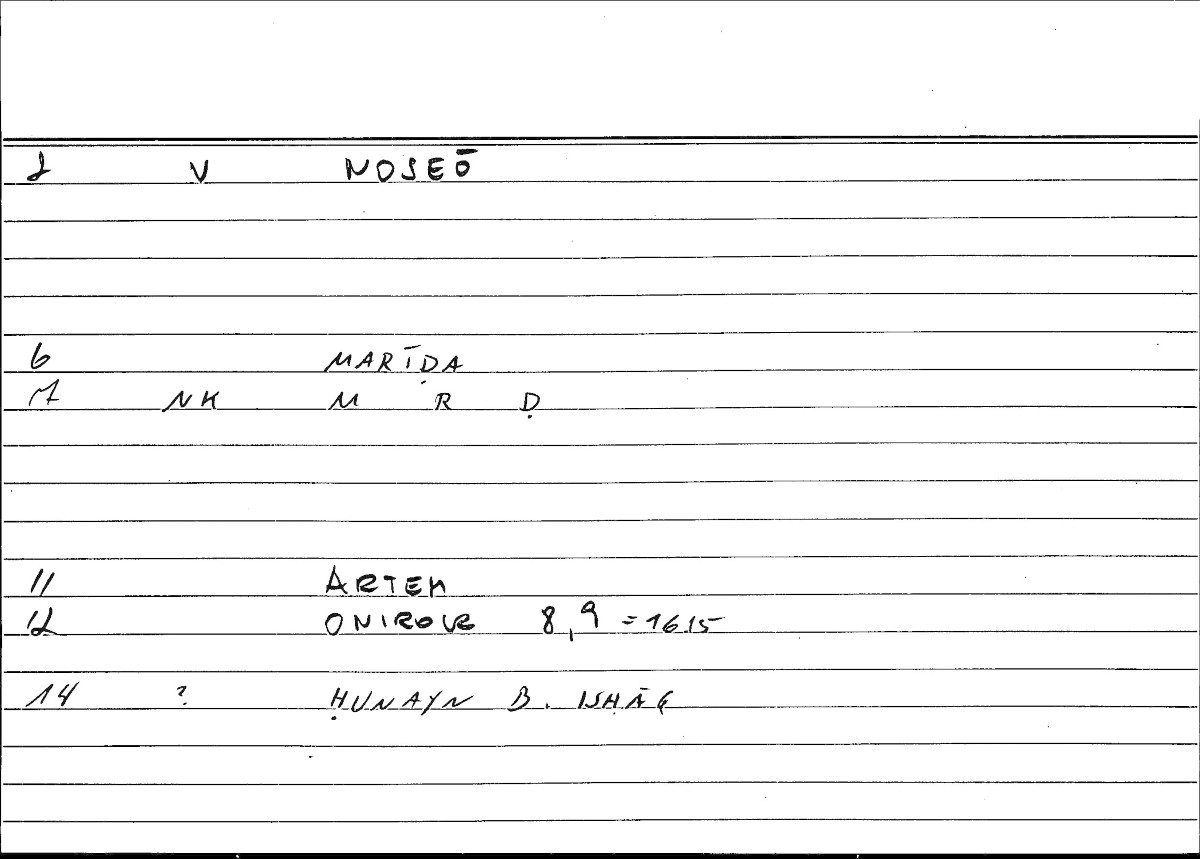 2 V NOSEŌ
6 MARĪḌA
7 NK M R Ḍ
11 ARTEM
12 ONIROKR 8,9 = 16.15
14 ? ḤUNAYN B. ISḤĀQ